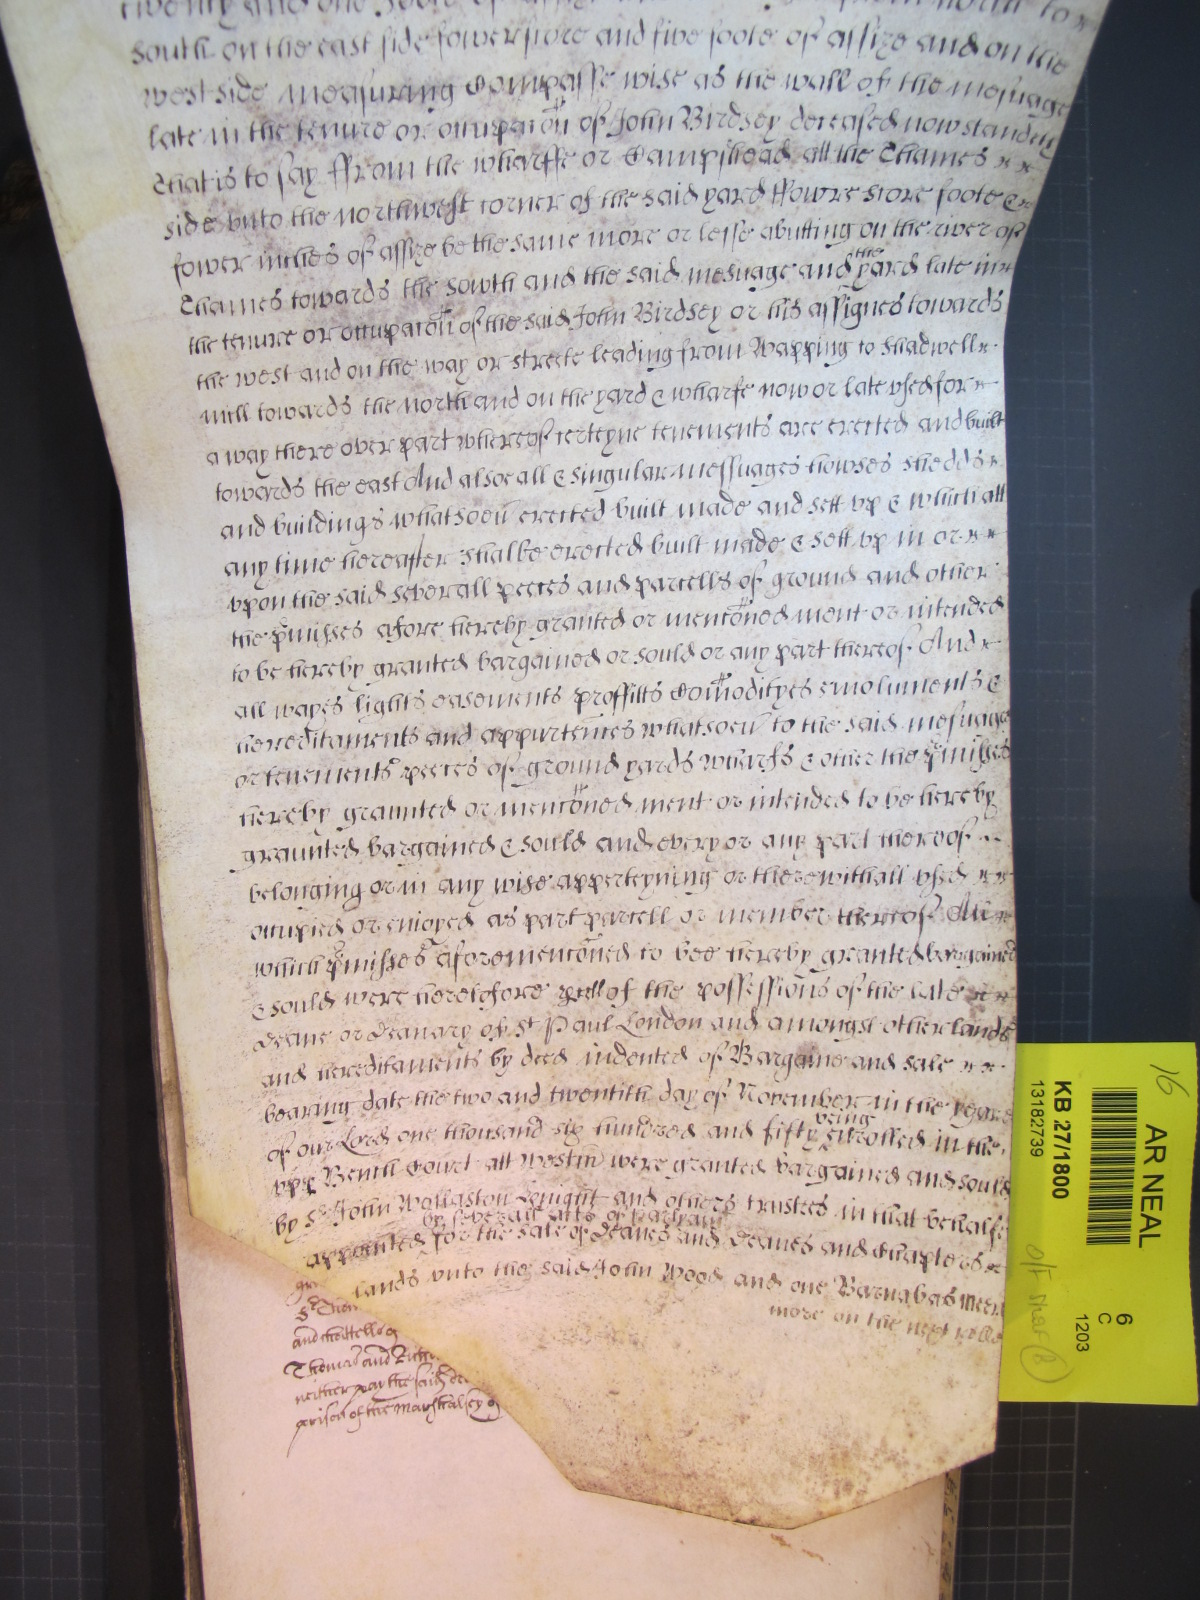 twenty and one foote of assize and north to
south on the east side fowerscore and five foote of assize and on the
west side measuring Compasse wise as the wall of the mesuage
late in the tenure or occupacōn of John Birdsey deceased now standeth
That is to say ffrom the wharffe or Campshead att the Thames
side unto the northwest corner of the said yard ffowre score foote &
fower inches of assize be the same more or lesse abutting on the river of
Thames towards the south and the said mesuage and the yard late in
the tenure or occupacōn of the said John Birdsey or his assignes towards
the west and on the way or streete leading from Wapping to Shadwell
mill towards the north and on the yard & wharfe now or late used for
a way there over part whereof certeyne tenements are erected and built
towards the east And alsoe all & singular messuages howses shedds
and buildings whatsoeū erected built made and sett up & which att
any time hereafter shalbe erected built made & sett up in or
upon the said severall peeces and parcells of ground and other
the pmisses afore hereby granted or mencōned ment or intended
to be hereby granted bargained or sould or any part thereof And
all wayes lights easements proffitts Com̄odityes emoluments &
hereditaments and appurtences whatsoeū to the said mesuage
or tenements peeces of ground yards wharfs & other the pmisses
hereby graunted or mencōned ment or intended to be hereby
graunted bargained & sould and every or any part thereof
belonging or in any wise apperteyning or therewithall used
occupied or enioyed as part parcell or member thereof All
which pmisses aforemencōned to bee hereby granted bargained
& sould were heretofore pcell of the possessions of the late
Deane or Deanary of St Paul London and amongst other lands
and hereditaments by deed indented of Bargaine and sale
bearing date the two and twentith day of November in the yeare
of our Lord one thousand six hundred and fifty being enrolled in the
upp Bench Court att Westm were granted bargained and sould
by Sr John Wollaston Knight and others trustees in that behalfe
appointed by severall acts of Parliam for the sale of Deanes and Deanes and Chapters
lands unto the said John Wood and one Barnabas Meer
more on the next rolle
St Thom
and the Fello
Thomas and
neither pay the said de
prison of the Marshalsey
16
AR NEAL
KB 27/1800
13182739
6
C
1203
O/F